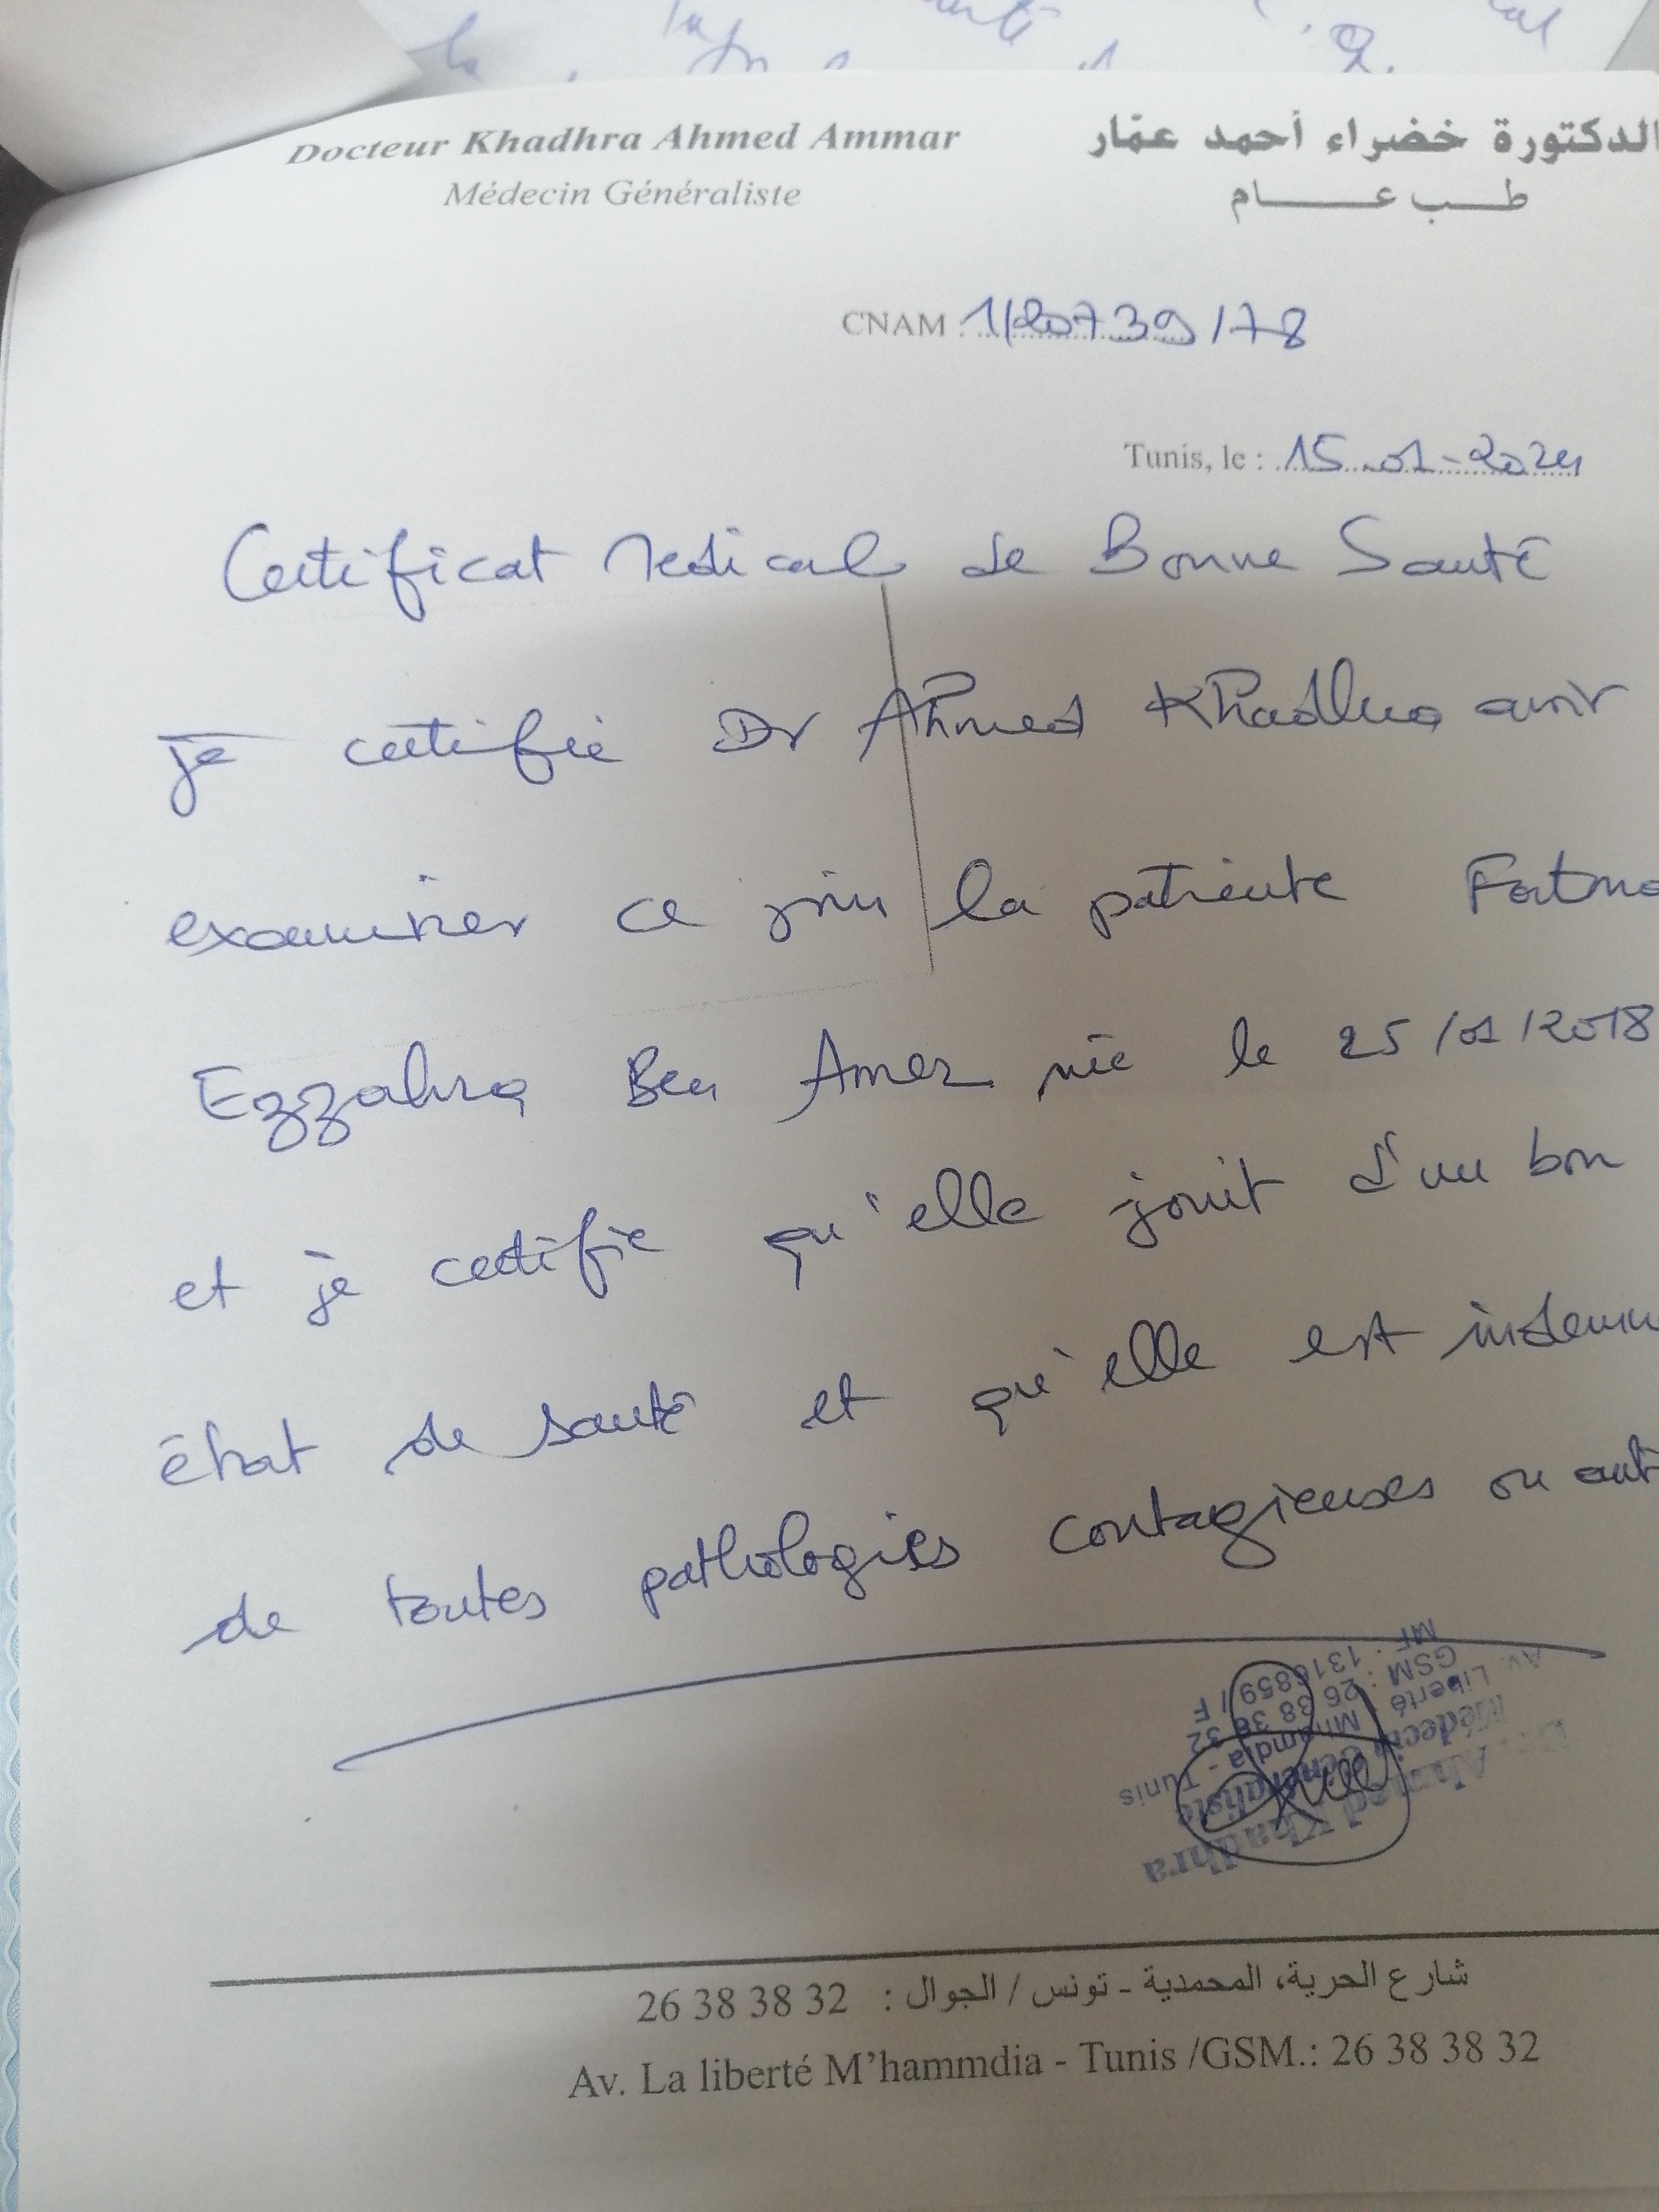 Docteur Khadhra Ahmed Ammar
الدكتورة خضراء أحمد عمّار
Médecin Généraliste
طب عام
CNAM : 1/20739/78
Tunis, le : 15.01-2024
Certificat Medical de Bonne Santé
je certifie Dr Ahmed Khadhra avoir
examiner ce jour la patiente Fatma
Ezzahra Ben Amer née le 25/01/2018
et je certifie qu'elle jouit d'un bon
état de santé et qu'elle est indemn
de toutes pathologies contagieuses ou aut
Dr. Ahmed Khadhra
Médecin Généraliste
Av. Liberté Mhamdia - Tunis
GSM : 26 38 38 32
MF : 1316859 / F
شارع الحرية، المحمدية - تونس / الجوال : 32 38 38 26
Av. La liberté M'hammdia - Tunis /GSM.: 26 38 38 32